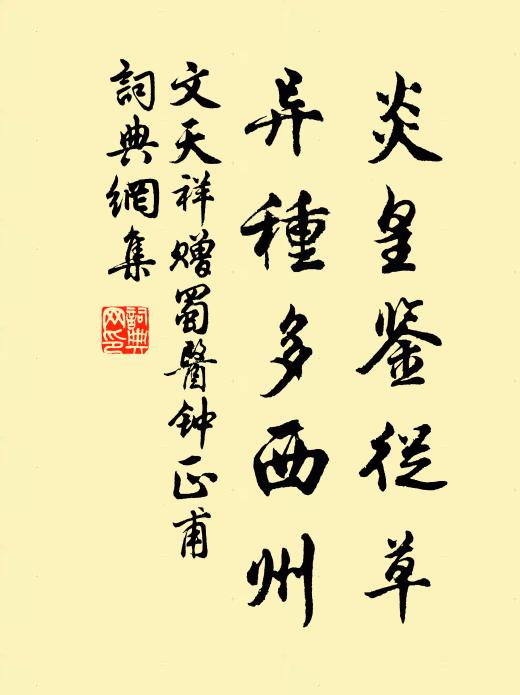 炎皇鉴從草
异種多西州
文天祥贈蜀醫钟正甫
詞典網集
詞典网印